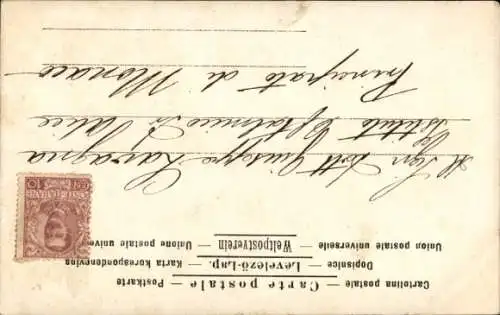 Cartolina postale — Carte postale — Postkarte
Dopisnice — Levelező-Lap. — Karta korespondencyina
Union postale universelle — Weltpostverein — Unione postale univer
Al Sig. Dott. Giuseppe
Istituto Oftalmico
Principato di Monaco
10